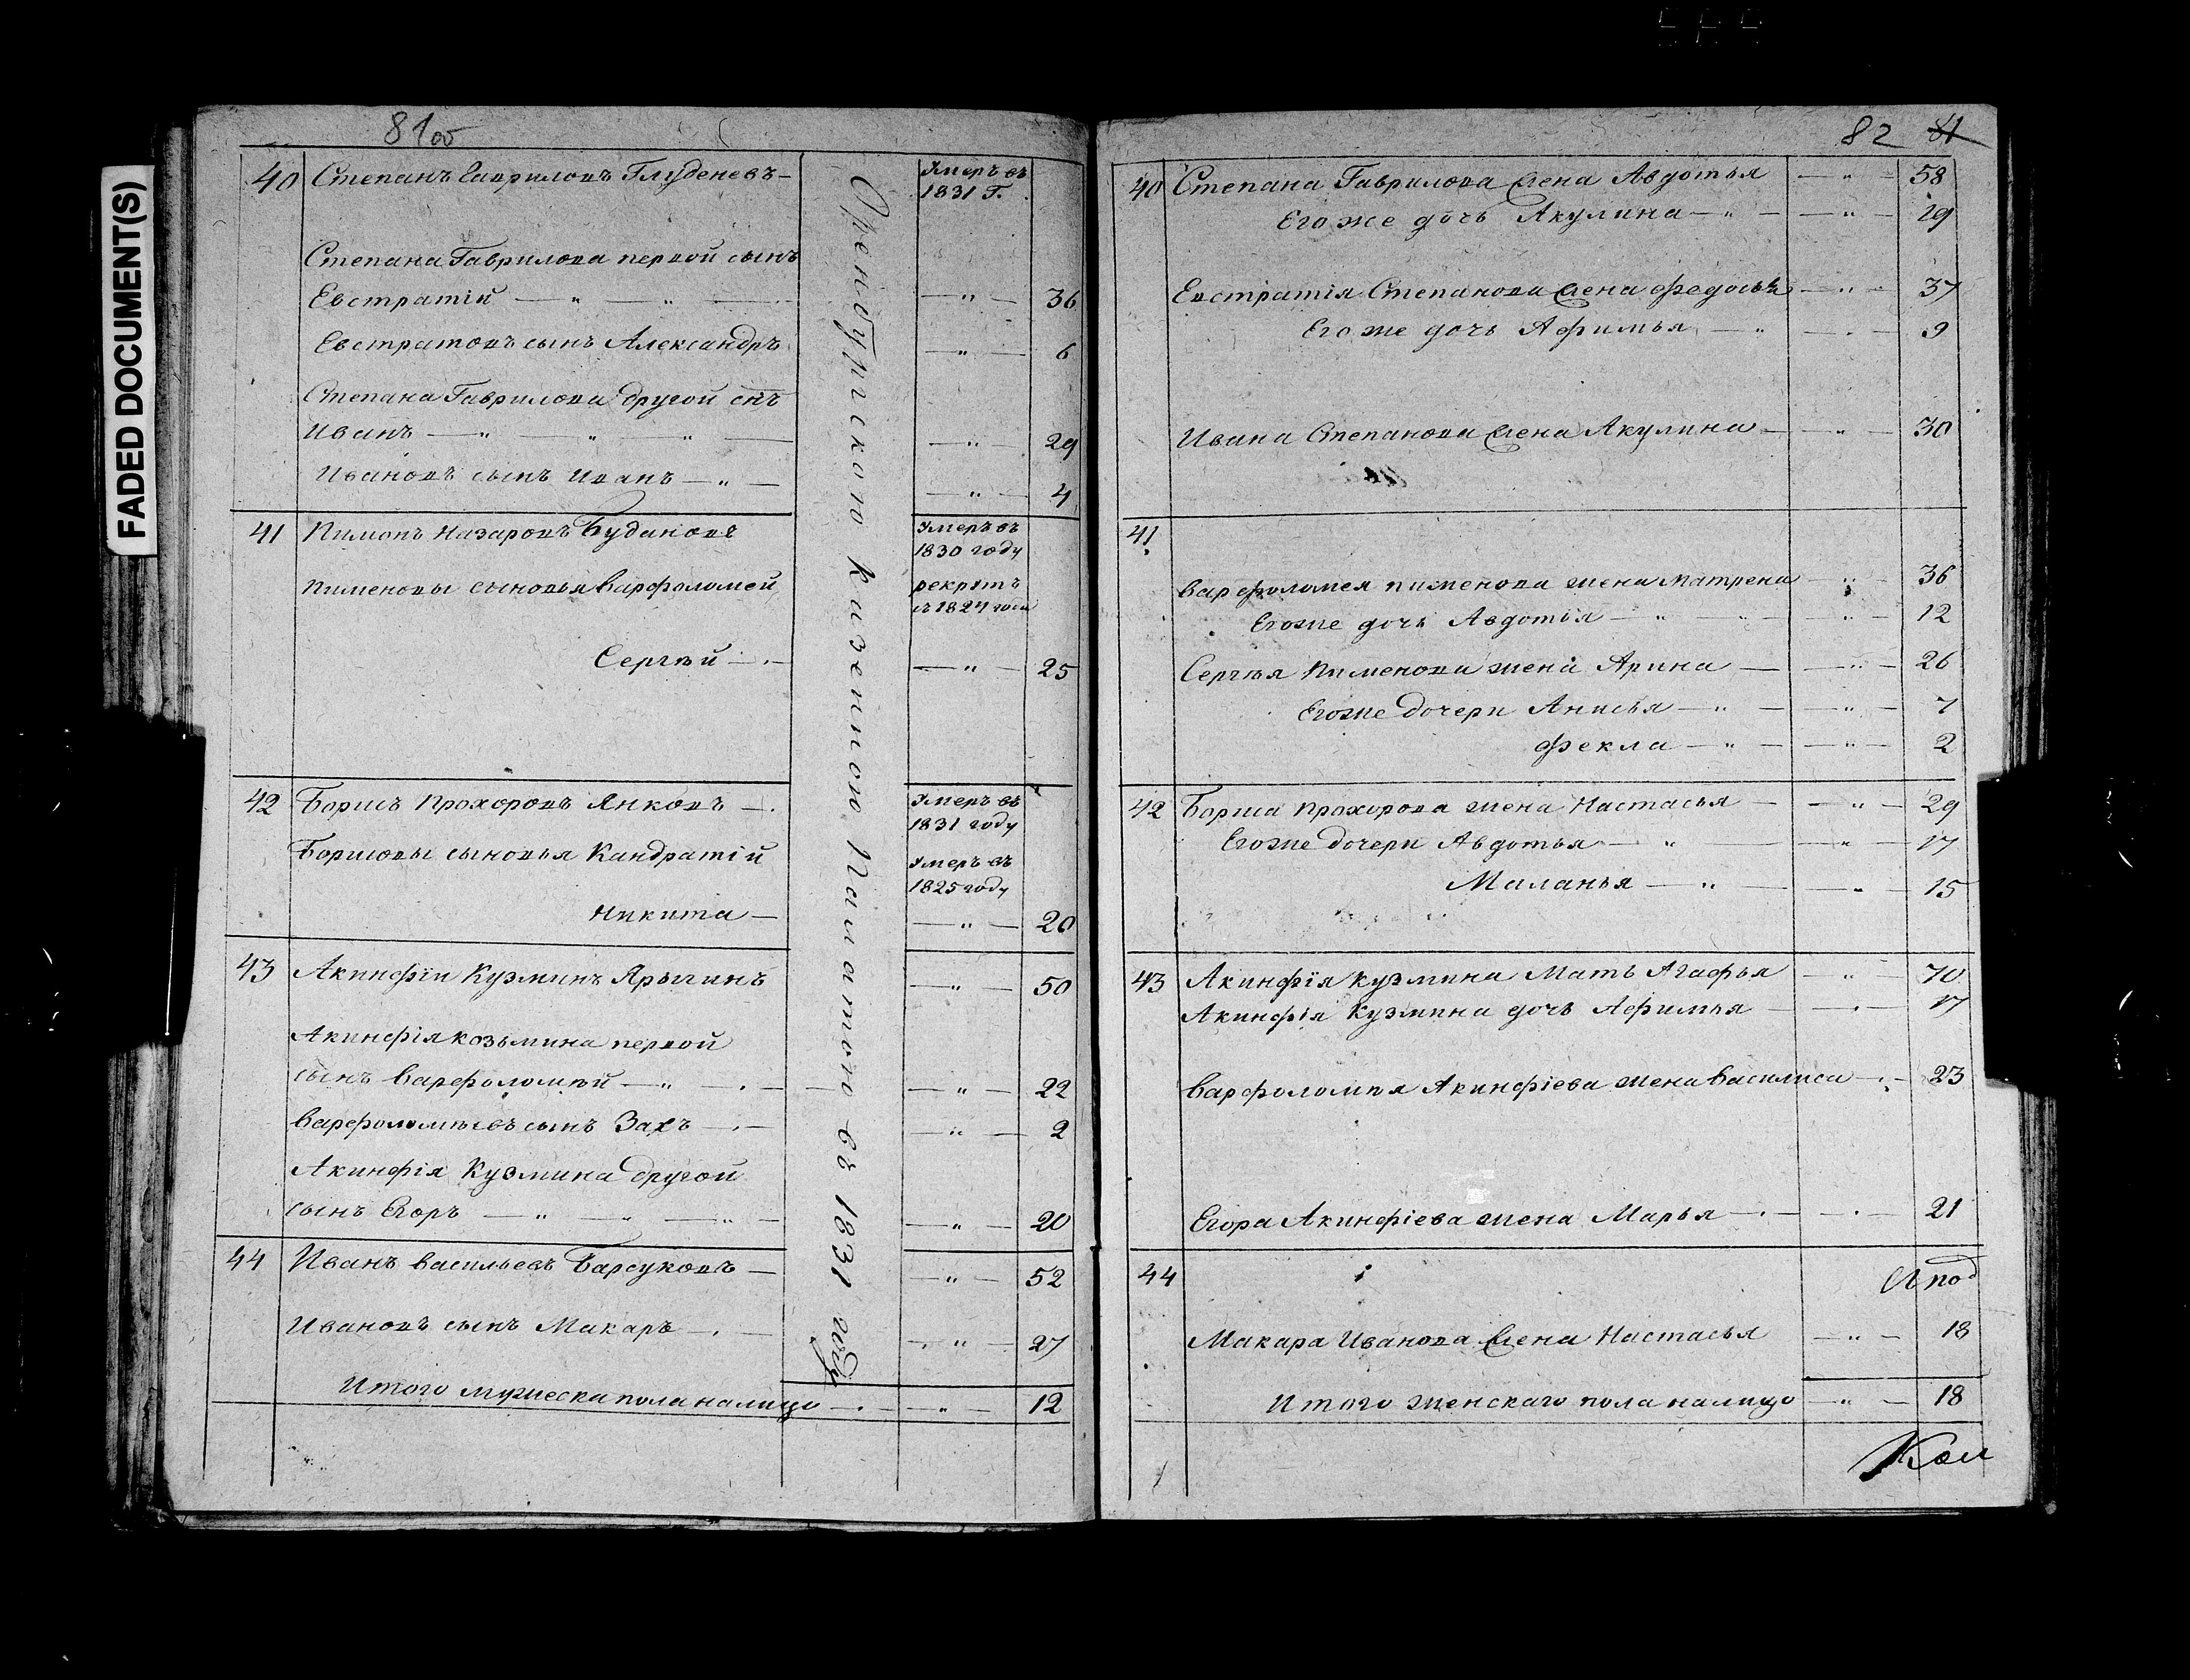 FADED DOCUMENT(S)
81об
40 Степанъ Гавриловъ Глуденевъ — Умеръ въ
1831 Г.
Степана Гаврилова первой сынъ
Евстратій — " — " — — " — 36
Евстратовъ сынъ Александръ — " — 6
Степана Гаврилова другой снъ
Иванъ — " — " — " — — " — 29
Ивановъ сынъ Иванъ — " — — " — 4
41 Пимонъ Назаровъ Будановъ Умеръ въ
1830 году
Пименовы сыновья Варфоломей рекрутъ
съ 1824 года
Сергѣй — " — — " — 25
42 Борисъ Прохоровъ Янковъ — Умеръ въ
1831 году
Борисовы сыновья Кандратій Умеръ въ
1825 году
Никита — — " — 20
43 Акинфїи Кузминъ Ярыгинъ — " — 50
Акинфія Козьмина первой
сынъ Варфоломѣй — " — — " — 22
Варфоломѣевъ сынъ Захъ — — " — 2
Акинфія Кузмина другой
сынъ Егоръ — " — " — " — — " — 20
44 Иванъ Васильевъ Барсуковъ — — " — 52
Ивановъ сынъ Макаръ — — " — 27
Итого мужеска пола налицо — " — 12
въ 1831 году
82 81
40 Степана Гаврилова жена Авдотья — " — 58
Его же дочь Акулина — " — — " — 19
Евстратія Степанова жена Федосья — " — 37
Его же дочь Афимья — " — — 9
Ивана Степанова жена Акулина — — " — 30
41
Варфоломея Пименова жена Матрена — " — 36
Егоже дочь Авдотья — " — " — — " — 12
Сергѣя Пименова жена Арина — — " — 26
Егоже дочери Анисья — " — — " — 7
Фекла — " — — " — 2
42 Бориса Прохорова жена Настасья — — " — 29
Егоже дочери Авдотья — " — — " — 17
Маланья — " — — " — 15
43 Акинфїя Кузмина Мать Агафья — " — 70
Акинфія Кузмина дочь Афимья — — 17
Варфоломѣя Акинфіева жена Василиса — 23
Егора Акинфіева жена Марья — — 21
44
Макара Иванова жена Настасья — " — 18
Итого женскаго пола налицо — " — 18